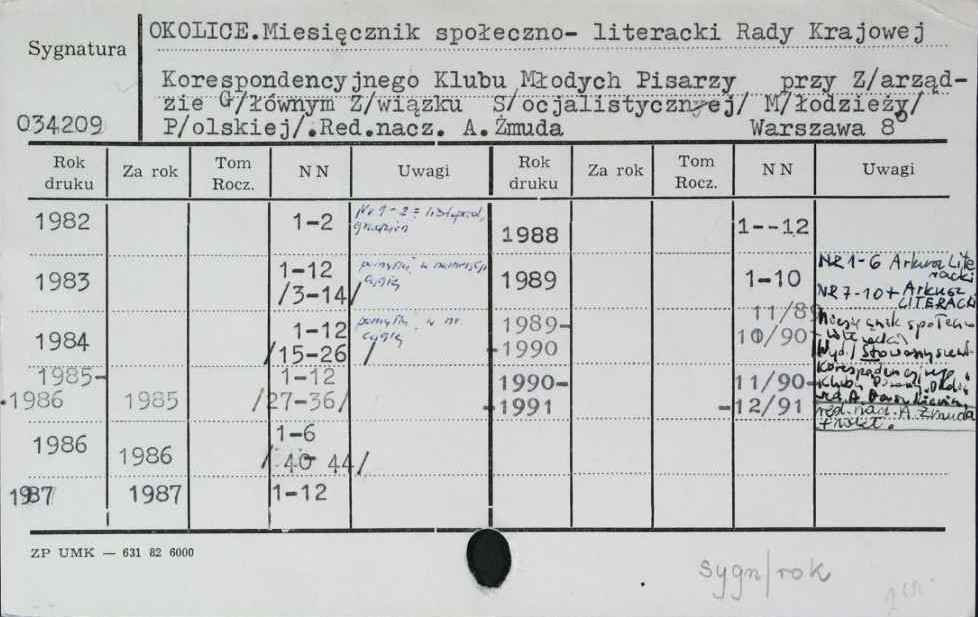 OKOLICE.Miesięcznik społeczno- literacki Rady Krajowej
Sygnatura
Korespondencyjnego Klubu Młodych Pisarzy przy Z/arząd-
zie G/łównym Z/wiązku S/ocjalistycznej/ M/łodzieży/
034209 P/olskiej/.Red.nacz. A.Żmuda Warszawa 8°
Rok druku Za rok Tom Rocz. NN Uwagi Rok druku Za rok Tom Rocz. NN Uwagi
1982 1-2 Nr 1-2 = listopad, grudzień
1988 1--12
1983 1-12 /3-14/ pomyłki w numeracji ciągłej
1989 1-10 NR 1-6 Arkusz Literacki
NR 7-10 + Arkusz LITERACKI
1984 1-12 /15-26/ w nr. ciągłej
1989-1990 11/89 10/90 Miesięcznik społeczno
Wyd./ Stowarzyszenie
1985-1986 1985 1-12 /27-36/
1990-1991 11/90-12/91
red. nacz. A. Żmuda
1986 1986 1-6 /40 44/
1987 1987 1-12
ZP UMK — 631 82 6000
sygn/rok